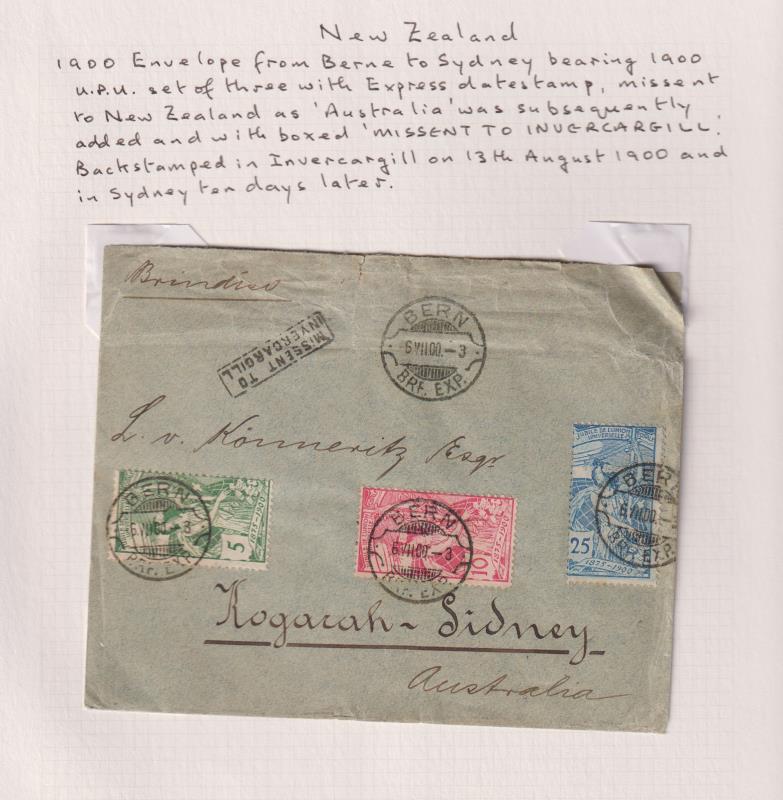 New Zealand
1900 Envelope from Berne to Sydney bearing 1900
U.P.U. set of three with Express datestamp, missent
to New Zealand as 'Australia' was subsequently
added and with boxed 'MISSENT TO INVERCARGILL.
Backstamped in Invercargill on 13th August 1900 and
in Sydney ten days later.
Brindisi
MISSENT TO
INVERCARGILL
BERN
6.VII.00.-3
BRF. EXP.
L. v. Könneritz Esqr
JUBILÉ DE L'UNION
UNIVERSELLE
BERN
6.VII.00.-3
BRF. EXP.
5
1875-1900
BERN
6.VII.00.-3
BRF. EXP.
10
1875-1900
BERN
6.VII.00.-
BRF. EXP.
25
1875-1900
Kogarah-Sidney
Australia